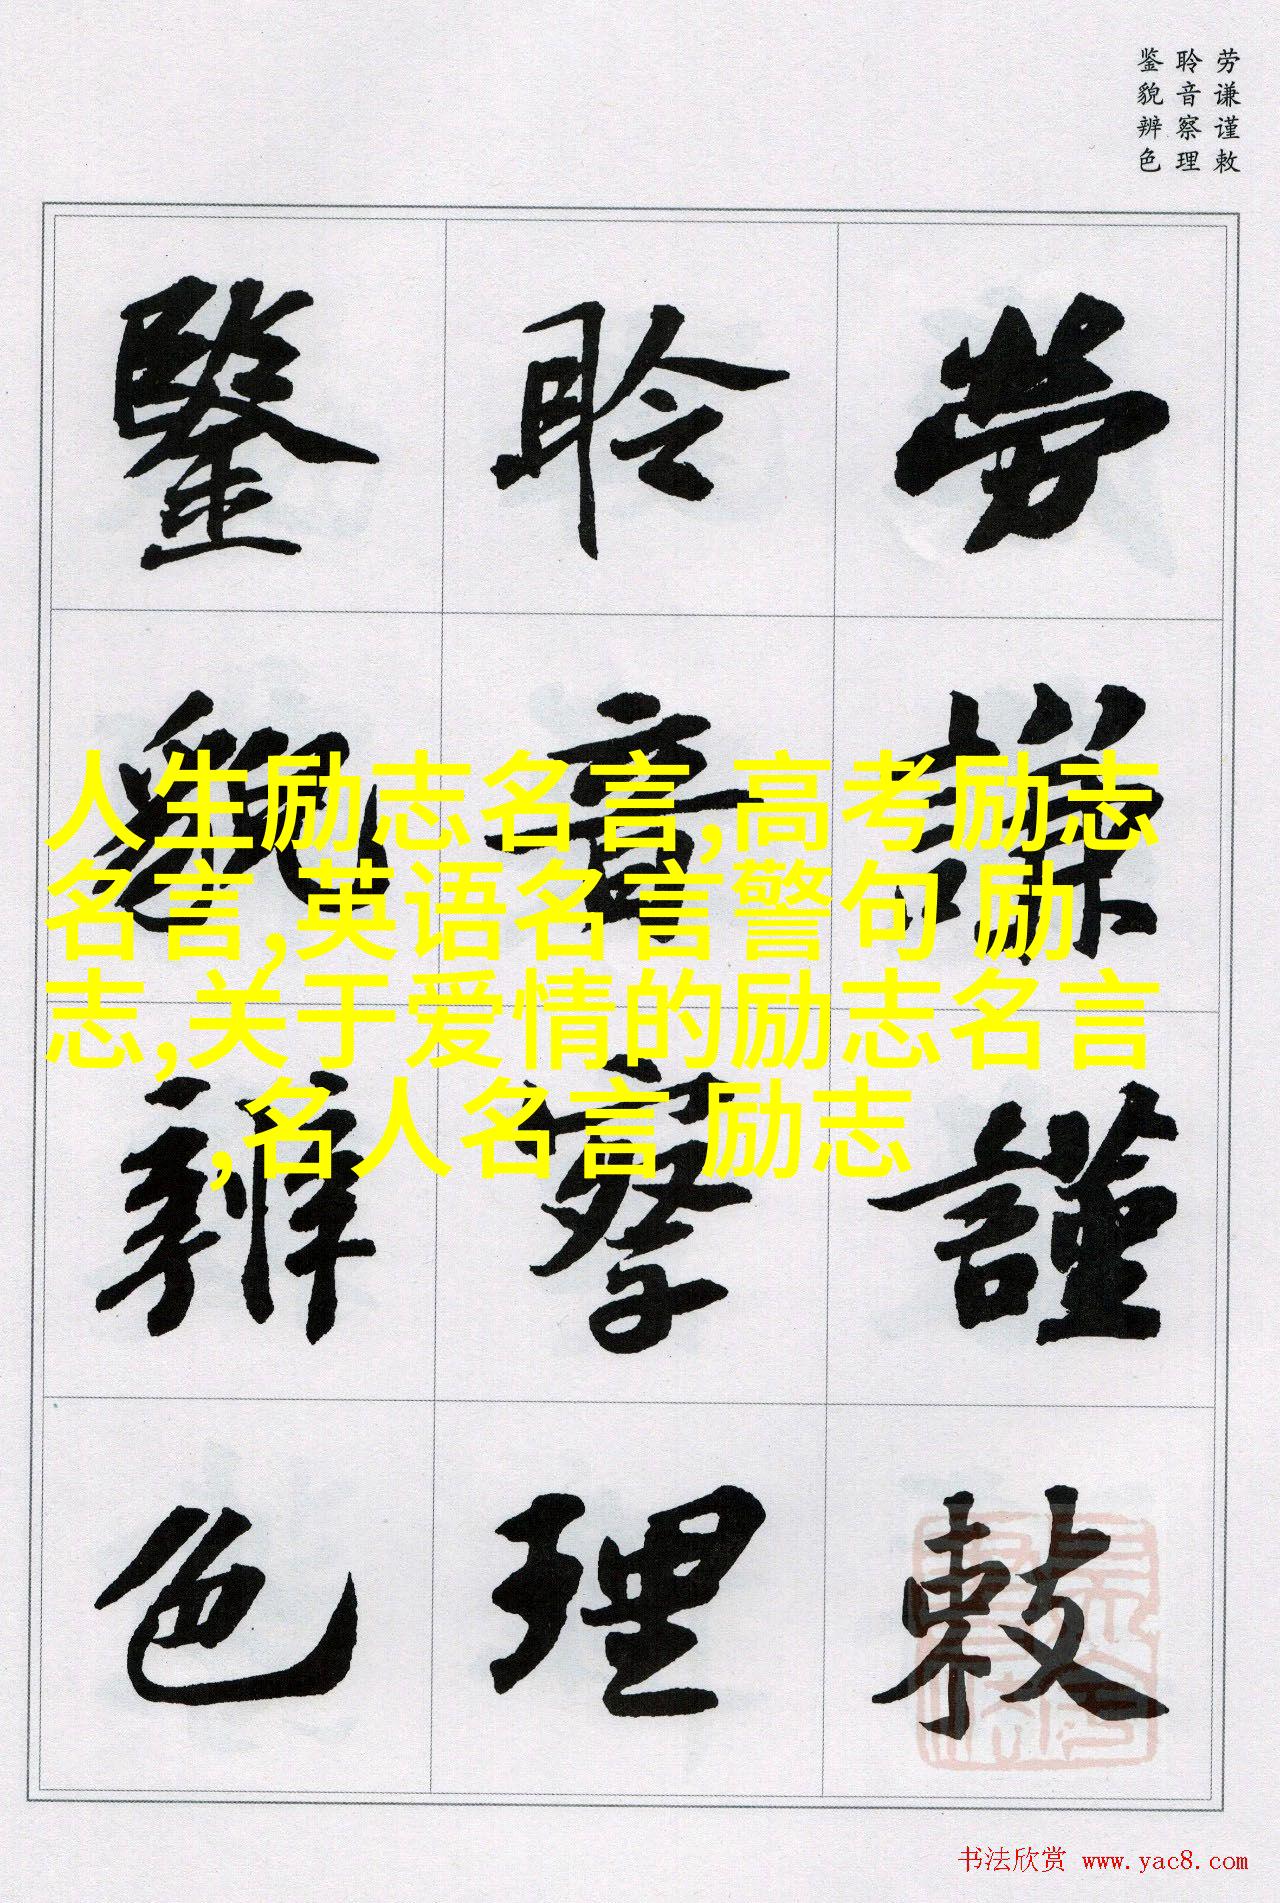 劳谦谨敕
聆音察理
鉴貌辨色
勞謙謹敕
聆音察理
鑒貌辨色
人生励志名言,高考励志
名言,英语名言警句 励
志,关于爱情的励志名言
,名人名言 励志
书法欣赏 www.yac8.com